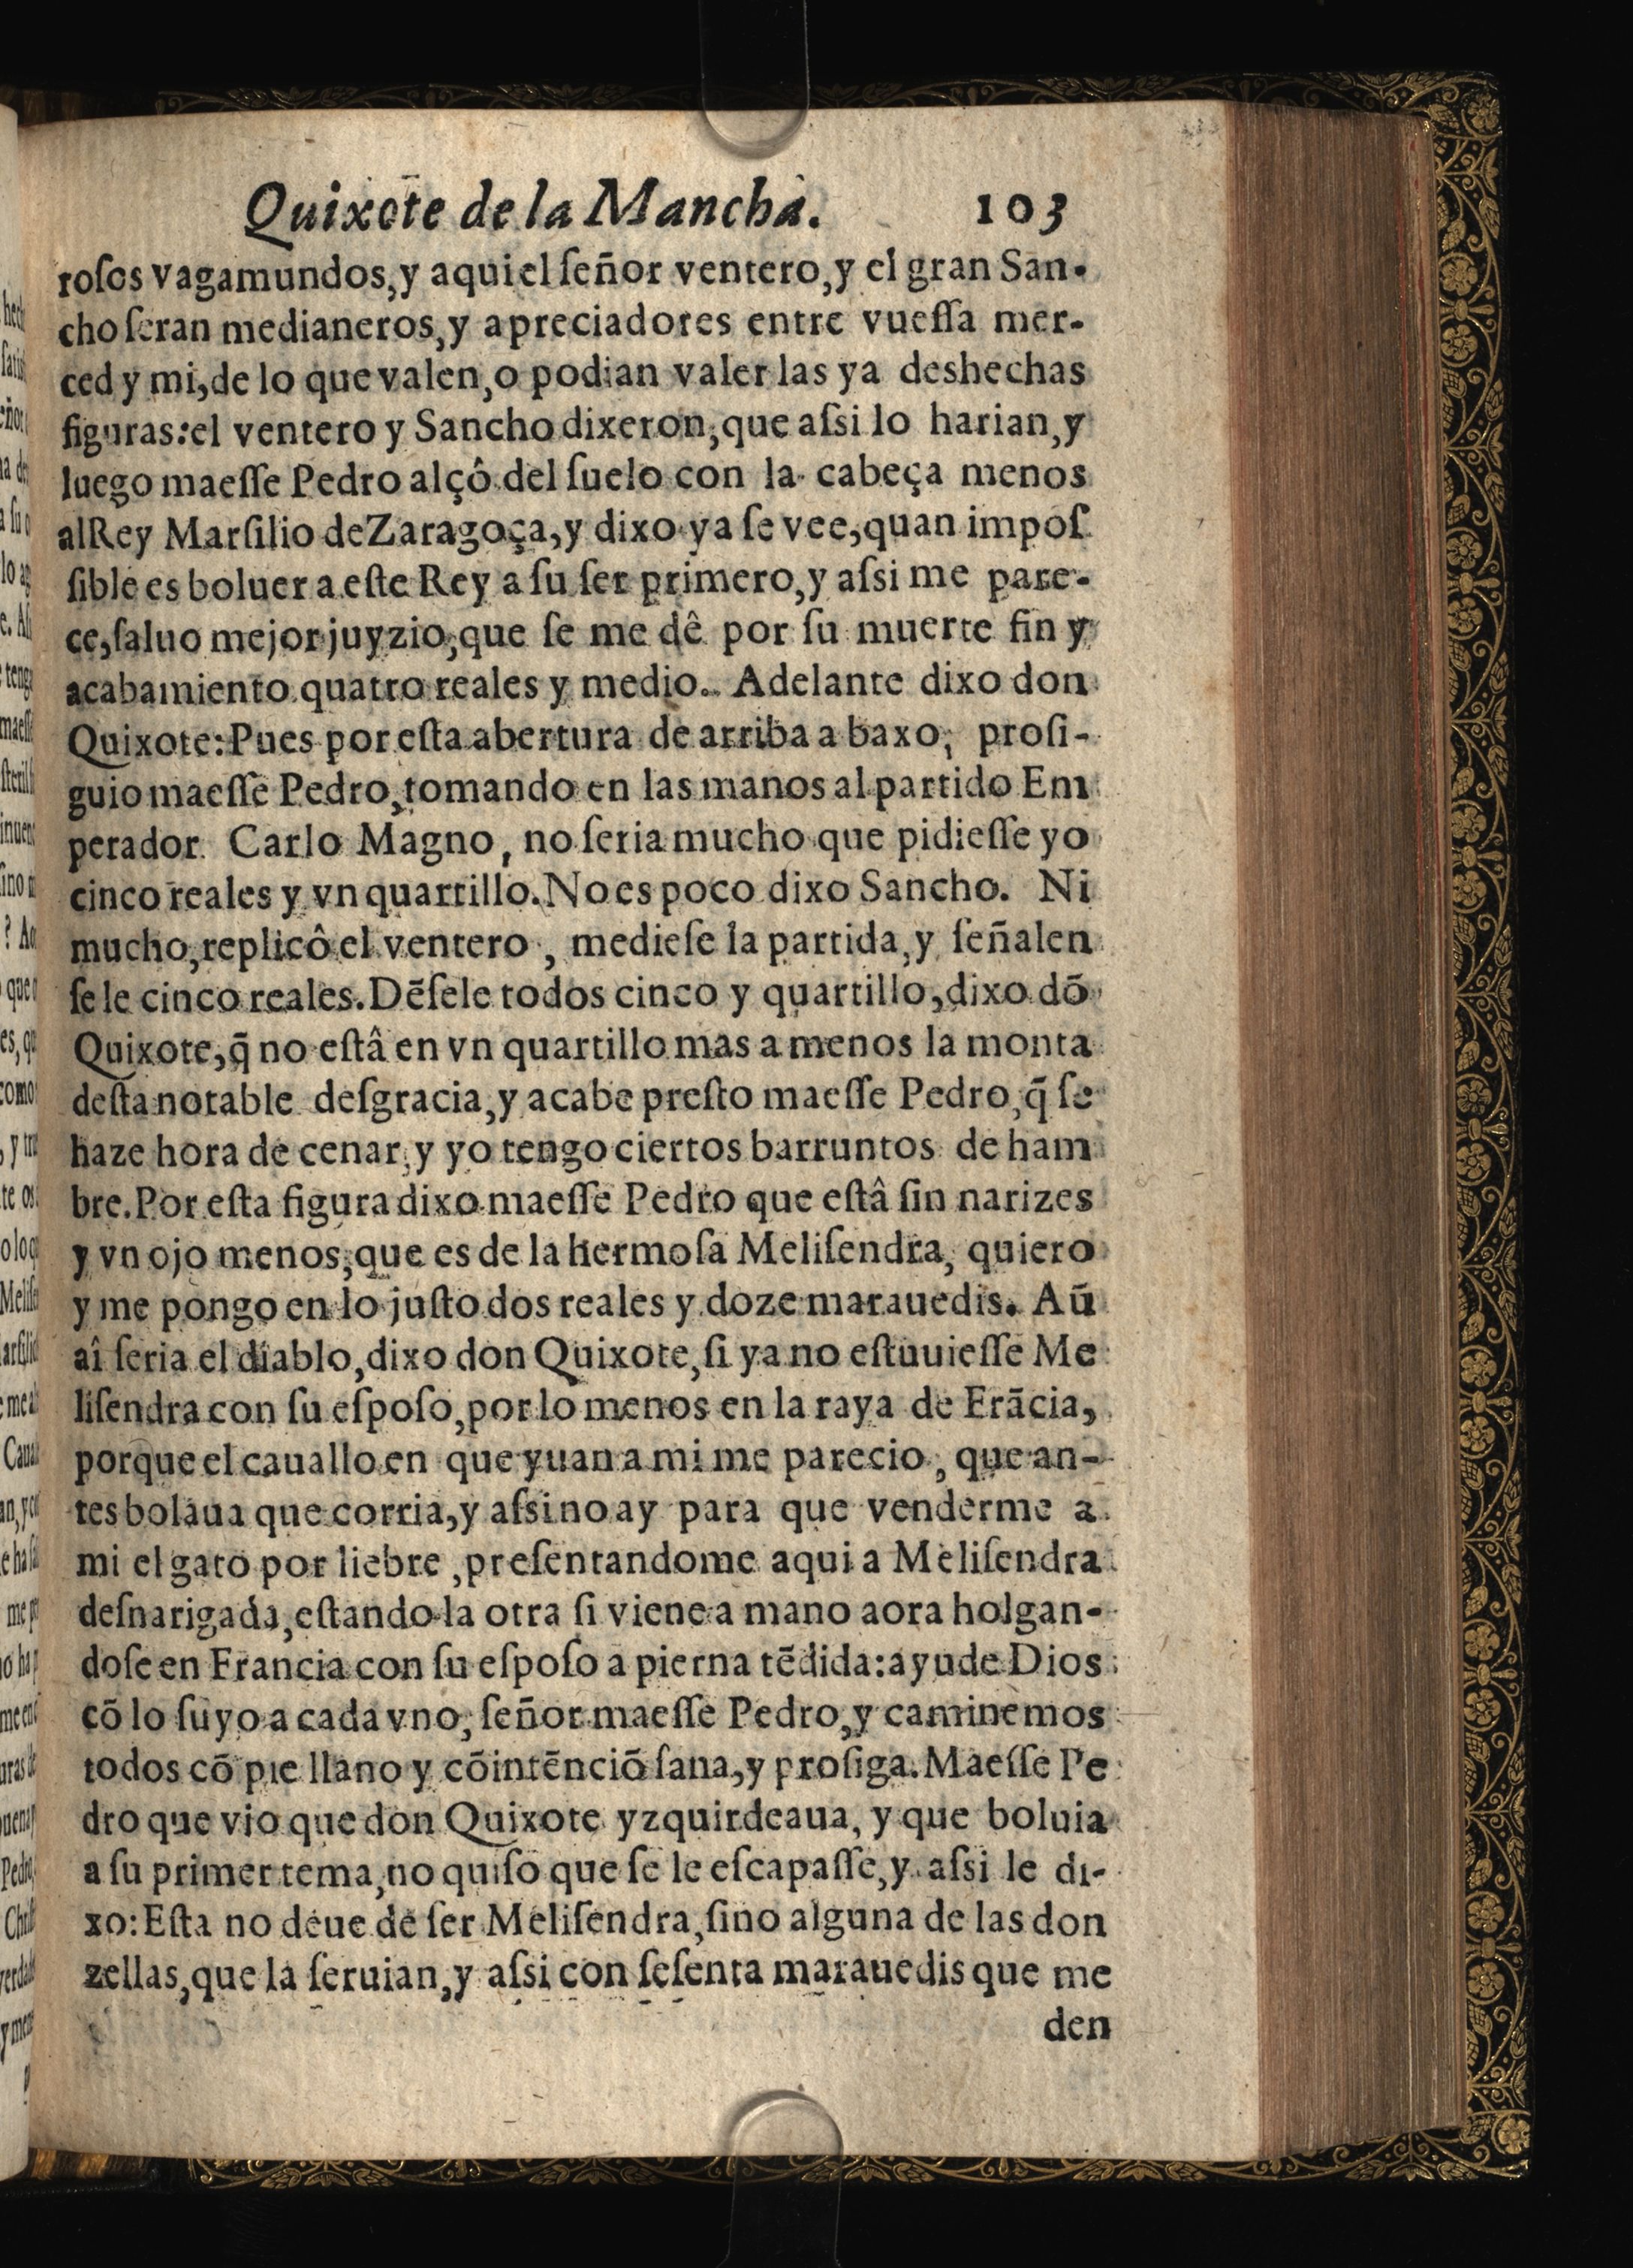 Quixote de la Mancha. 103
roſos vagamundos, y aqui el ſeñor ventero, y el gran San-
cho ſeran medianeros, y apreciadores entre vueſſa mer-
ced y mi, de lo que valen, o podian valer las ya deshechas
figuras: el ventero y Sancho dixeron, que aſsi lo harian, y
luego maeſſe Pedro alçô del ſuelo con la cabeça menos
al Rey Marſilio de Zaragoça, y dixo ya ſe vee, quan impoſ
ſible es boluer a eſte Rey a ſu ſer primero, y aſsi me pare-
ce, ſaluo mejor juyzio, que ſe me dê por ſu muerte fin y
acabamiento quatro reales y medio. Adelante dixo don
Quixote: Pues por eſta abertura de arriba a baxo, proſi-
guio maeſſe Pedro, tomando en las manos al partido Em
perador Carlo Magno, no ſeria mucho que pidieſſe yo
cinco reales y vn quartillo. No es poco dixo Sancho. Ni
mucho, replicô el ventero, medieſe la partida, y ſeñalen
ſe le cinco reales. Dēſele todos cinco y quartillo, dixo dō
Quixote, q̄ no eſtâ en vn quartillo mas a menos la monta
deſta notable deſgracia, y acabe preſto maeſſe Pedro, q̄ ſe
haze hora de cenar, y yo tengo ciertos barruntos de ham
bre. Por eſta figura dixo maeſſe Pedro que eſtâ ſin narizes
y vn ojo menos, que es de la hermoſa Meliſendra, quiero
y me pongo en lo juſto dos reales y doze marauedis. Aū
aî ſeria el diablo, dixo don Quixote, ſi ya no eſtuuieſſe Me
liſendra con ſu eſpoſo, por lo menos en la raya de Frācia,
porque el cauallo en que yuan a mi me parecio, que an-
tes bolaua que corria, y aſsi no ay para que venderme a
mi el gato por liebre, preſentandome aqui a Meliſendra
deſnarigada, eſtando la otra ſi viene a mano aora holgan-
doſe en Francia con ſu eſpoſo a pierna tēdida: ayude Dios
cō lo ſuyo a cada vno, ſeñor maeſſe Pedro, y caminemos
todos cō pie llano y cō intēnciō ſana, y proſiga. Maeſſe Pe
dro que vio que don Quixote yzquirdeaua, y que boluia
a ſu primer tema, no quiſo que ſe le eſcapaſſe, y aſsi le di-
xo: Eſta no deue de ſer Meliſendra, ſino alguna de las don
zellas, que la ſeruian, y aſsi con ſeſenta marauedis que me
den